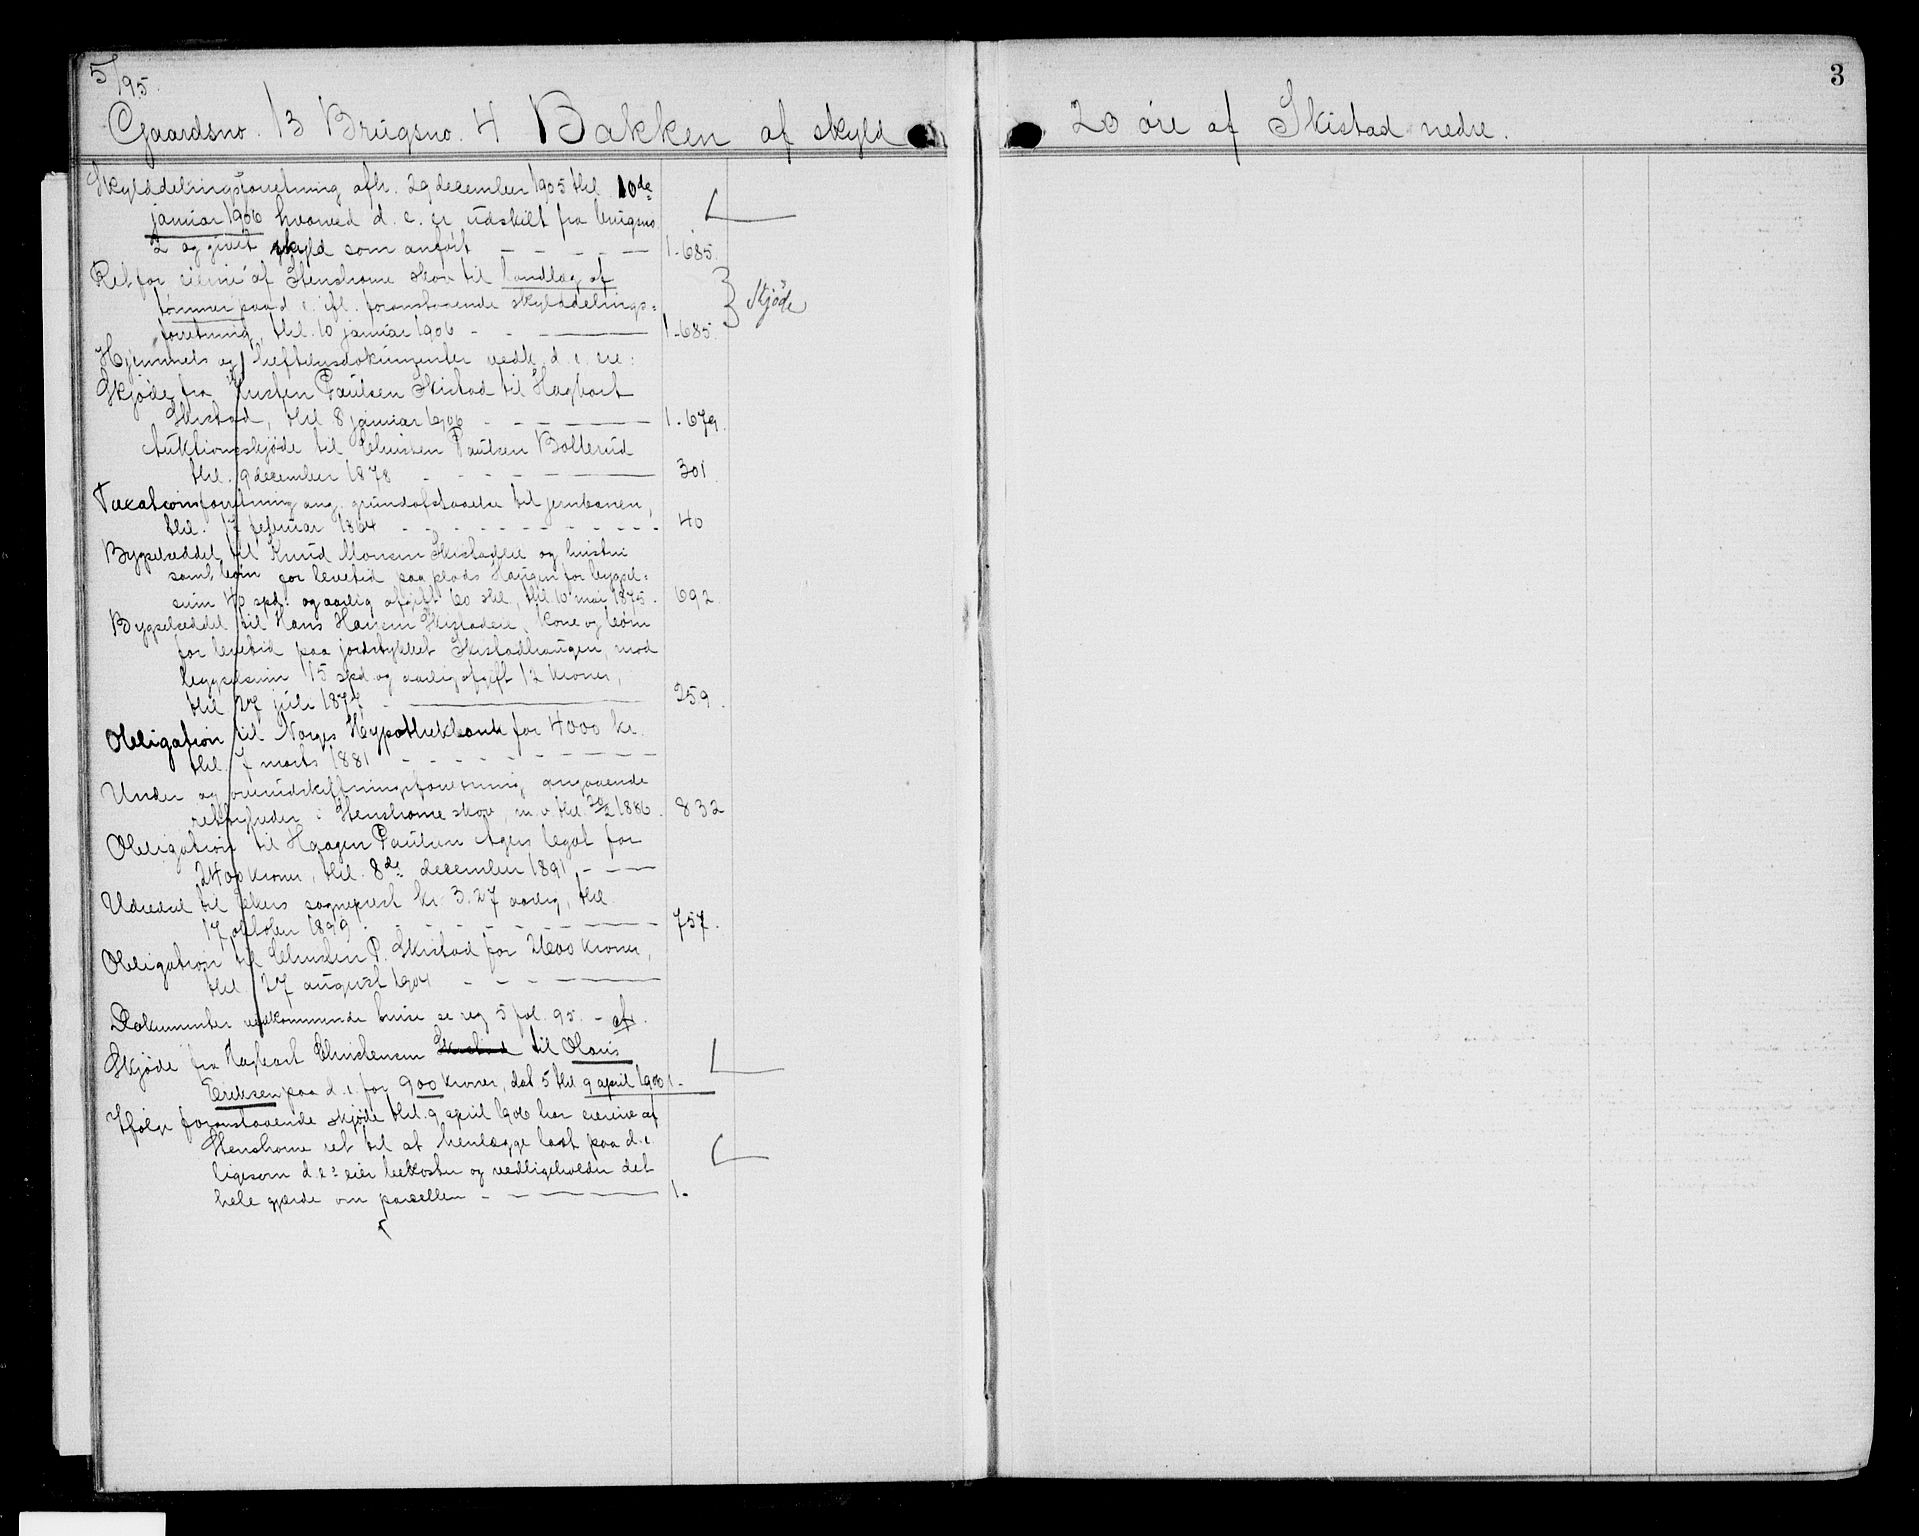 5/95.
3
Gaardsno. 13 Brugsno. 4 Bakken af skyld 20 øre af Skistad nedre.
Skylddelingsforretning afh. 29 december 1905 thl. 10de
januar 1906 hvorved d. e. er udskilt fra brugsno
2 og givet skyld som anført 1-685.
Ret for eierne af Stenshorne skov til landlæg af
tømmer paa d. e. ifl. foranstaaende skylddelings=
forretning, thl. 10 januar 1906 - 1-685.
Skjøde
Hjemmels og heftelsesdokumenter vedk. d. e. ere:
Skjøde fra Kristen Paulsen Skistad til Hagbart
Skistad, thl 8 januar 1906 - 1-679.
Auktionsskjøde til Christen Paulsen Bollerud
thl. 9 december 1878 301.
Taxationsforretning ang. grundafstaaelse til jernbanen,
thl. 17 februar 1864 40
Bygselseddel til Knud Monsen Skistadeie og hustru
samt børn for levetid paa plads Haugen for bygsel=
sum 40 spd. og aarlig afgift 60 skil, thl 10 mai 1875. 692
Bygselseddel til Hans Hansen Skistadeie, kone og børn
for levetid paa jordstykket Skistadhaugen, mod
bygselsum 15 spd og aarlig afgift 12 kroner,
thl 27 juli 1877 - 259.
Obligation til Norges Hypothekbank for 4000 kr.
thl. 7 marts 1881
Under og overudskiftningsforretning angaaende
rettigheder i Stenshorne skov, m. v. thl. 20/2 1886. 832
Obligation til Haagen Paulsen Agers legat for
2400 kroner, thl. 8de december 1891
Udredsel til Lekers sogneprest kr. 3.27 aarlig, thl.
17 oktober 1899. 757.
Obligation til Christen P. Skistad for 2600 kroner,
thl. 27 august 1904
Dokumenter vedkommende huse se reg 5 fol. 95. - af.
Skjøde fra Hagbart Christensen Skistad til Olaus
Eriksen paa d. e for 900 kroner, dat 5 thl 9 april 1906 1-
Ifølge foranstaaende skjøde thl. 9 april 1906 har eierne af
Stenshorne ret til at henlægge last paa d. e
ligesom d. e.s eier bekoster og vedligeholder det
hele gjærde om parcellen - 1-